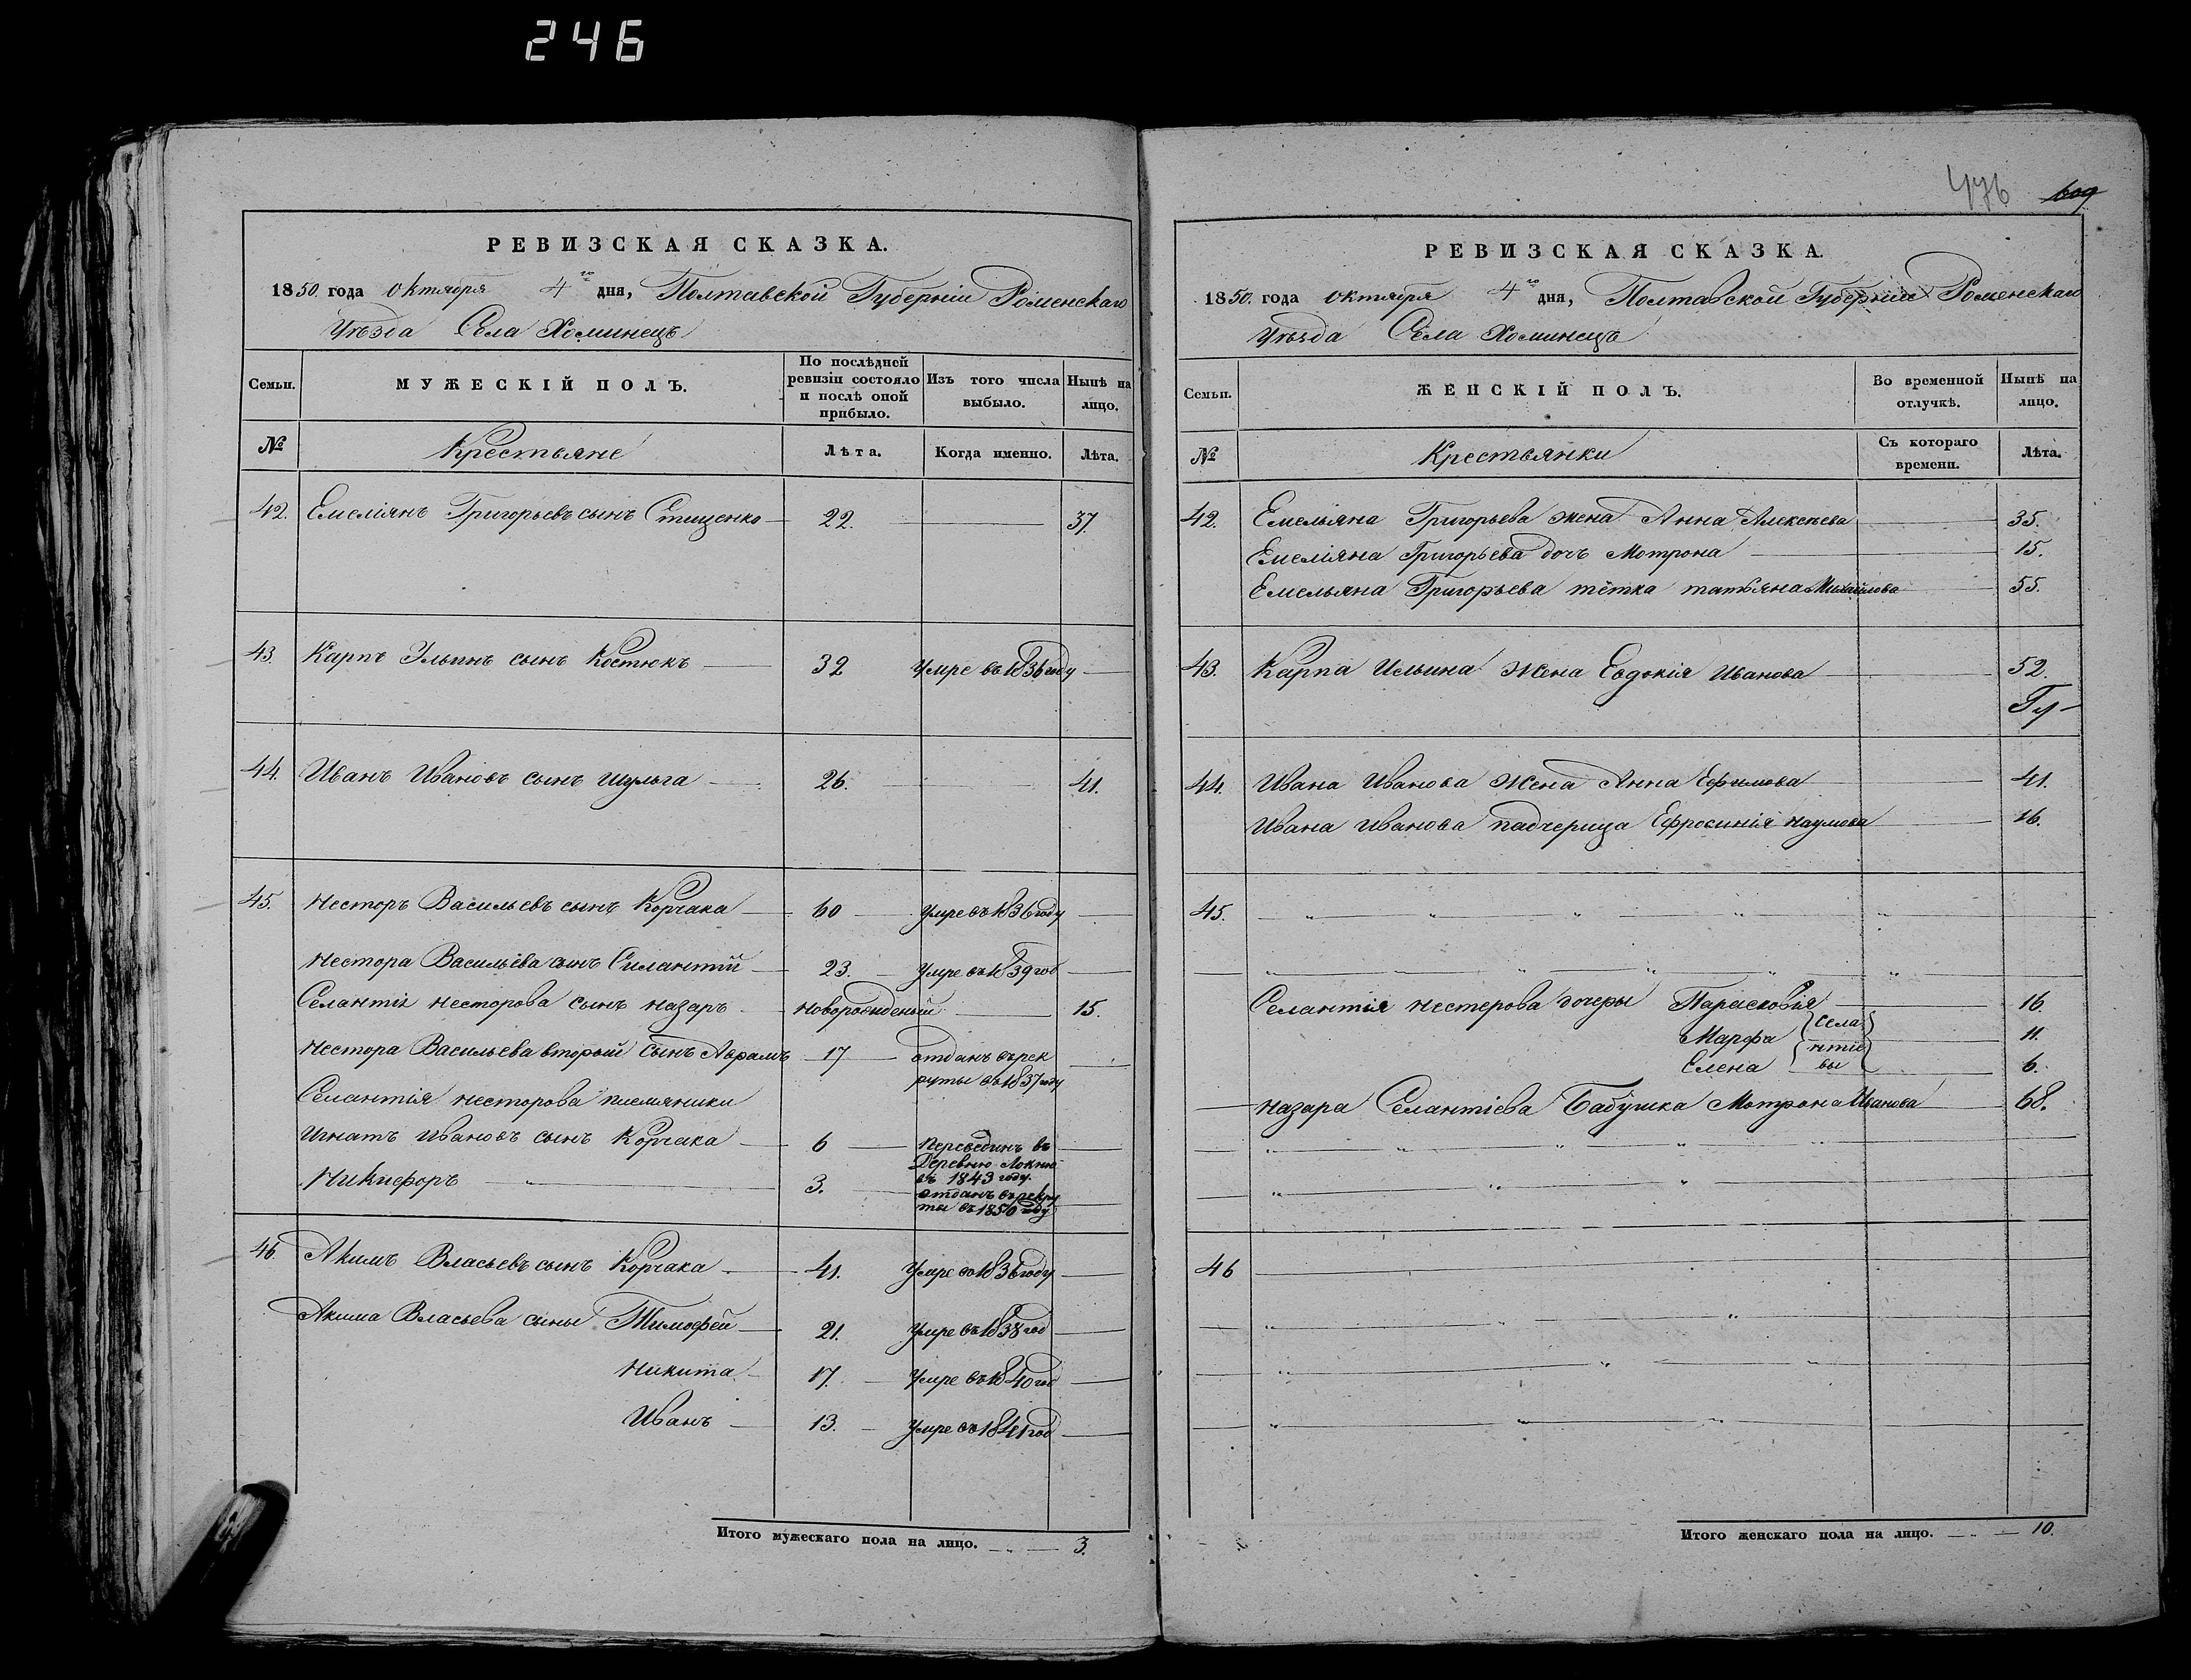 246
РЕВИЗСКАЯ СКАЗКА.
1850. года октября 4го дня, Полтавской Губернiи Роменскаго
Уѣзда Села Хоминецъ
Семьи.
МУЖЕСКIЙ ПОЛЪ.
По послѣдней ревизiи состояло и послѣ оной прибыло.
Изъ того числа выбыло.
Нынѣ на лицо.
№
Крестьяне
Лѣта.
Когда именно.
Лѣта.
42. Емелiянъ Григорьевъ сынъ Стищенко 22. 37.
43. Карпъ Ильинъ сынъ Костюкъ 32 Умре въ 1836 году
44. Иванъ Ивановъ сынъ Шульга 26. 41.
45. Несторъ Васильевъ сынъ Корчака 60 Умре въ 1836 году
Нестора Васильева сынъ Силантiй 23. Умре въ 1839 год
Селантiя Несторова сынъ Назаръ Новорожденый 15.
Нестора Васильева вторый сынъ Аврамъ 17 отданъ въ рек
руты въ 1837 году
Селантiя Несторова племяники
Игнатъ Ивановъ сынъ Корчака 6 Перевединъ въ
Деревню Локню
въ 1843 году.
Никифоръ „ 3. отданъ въ рекру
ты въ 1850 году
46. Акимъ Власьевъ сынъ Корчака 41. Умре въ 1836 году
Акима Власьева сыны Тимофей 21. Умре въ 1838 год
Никита 17. Умре въ 1840 год
Иванъ 13. Умре въ 1841 год
Итого мужескаго пола на лицо. 3.
476 609
РЕВИЗСКАЯ СКАЗКА.
1850. года октября 4го дня, Полтавской Губернiи Роменскаго
Уѣзда Села Хоминецъ
Семьи.
ЖЕНСКIЙ ПОЛЪ.
Во временной отлучкѣ.
Нынѣ на лицо.
№
Крестьянки
Съ котораго времени.
Лѣта.
42. Емельяна Григорьева жена Анна Алексѣева 35.
Емелiяна Григорьева дочъ Мотрона 15.
Емельяна Григорьева тётка татьяна Михайлова 55.
43. Карпа Ильина жена Евдокiя Иванова 52.
44. Ивана Иванова жена Анна Ефимова 41.
Ивана Иванова падчерица Ефросинiя Наумова 16.
45.
Селантiя Нестерова дочеры Парасковiя 16.
Марфа {Села 11.
Елена {нтiе
вы 6.
Назара Селантiева Бабушка Мотрона Иванова 68.
46
Итого женскаго пола на лицо. 10.